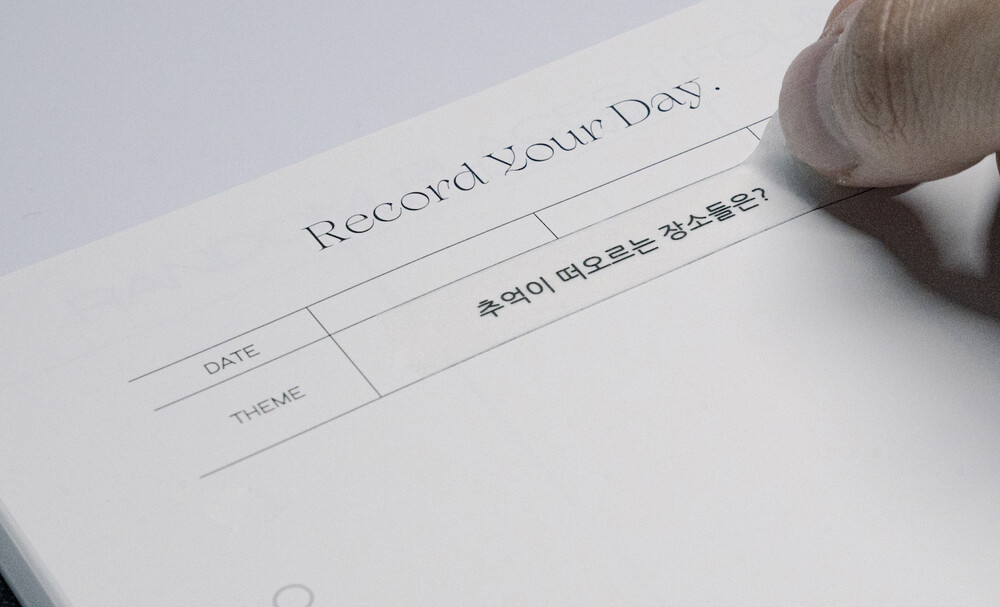 Record Your Day.
DATE
THEME 추억이 떠오르는 장소들은?